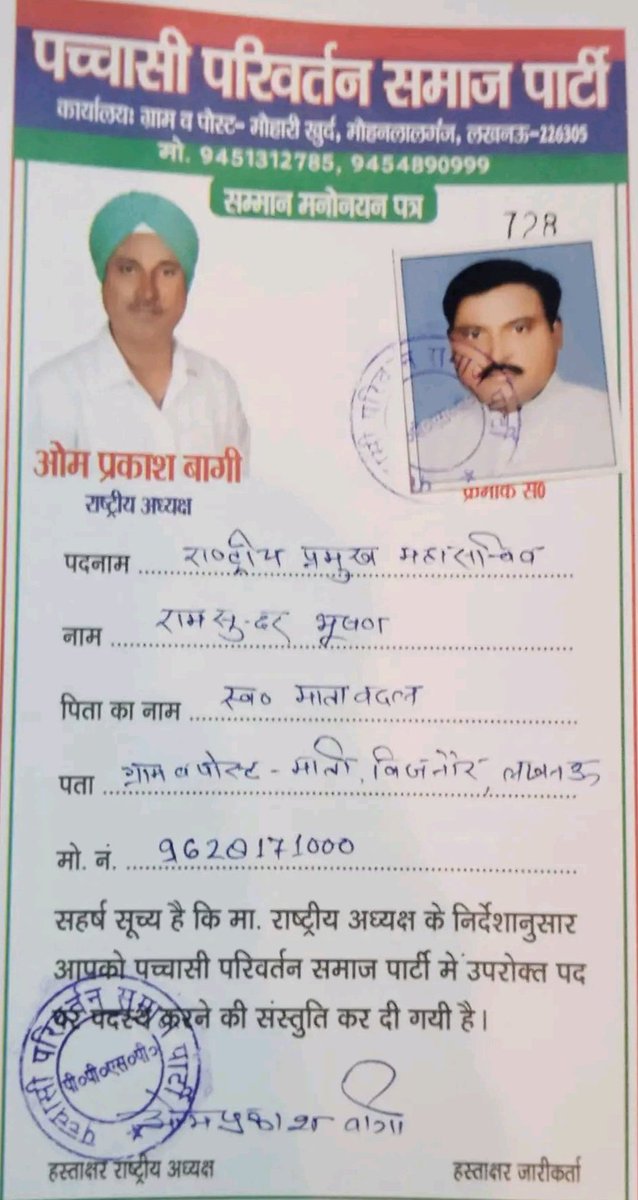 पच्चासी परिवर्तन समाज पार्टी
कार्यालयः ग्राम व पोस्ट- मौहारी खुर्द, मोहनलालगंज, लखनऊ-226305
मो. 9451312785, 9454890999
सम्मान मनोनयन पत्र
728
ओम प्रकाश बागी
राष्ट्रीय अध्यक्ष
क्रमाक स0
पदनाम राष्ट्रीय प्रमुख महासचिव
नाम रामसुन्दर भूषण
पिता का नाम स्व० माताबदल
पता ग्राम व पोस्ट - माती, बिजनौर, लखनऊ
मो. नं. 9620171000
सहर्ष सूच्य है कि मा. राष्ट्रीय अध्यक्ष के निर्देशानुसार
आपको पच्चासी परिवर्तन समाज पार्टी में उपरोक्त पद
पर पदस्थ करने की संस्तुति कर दी गयी है।
पच्चासी परिवर्तन समाज पार्टी
पी०पी०एस०पी०
ओमप्रकाश बागी
हस्ताक्षर राष्ट्रीय अध्यक्ष
हस्ताक्षर जारीकर्ता